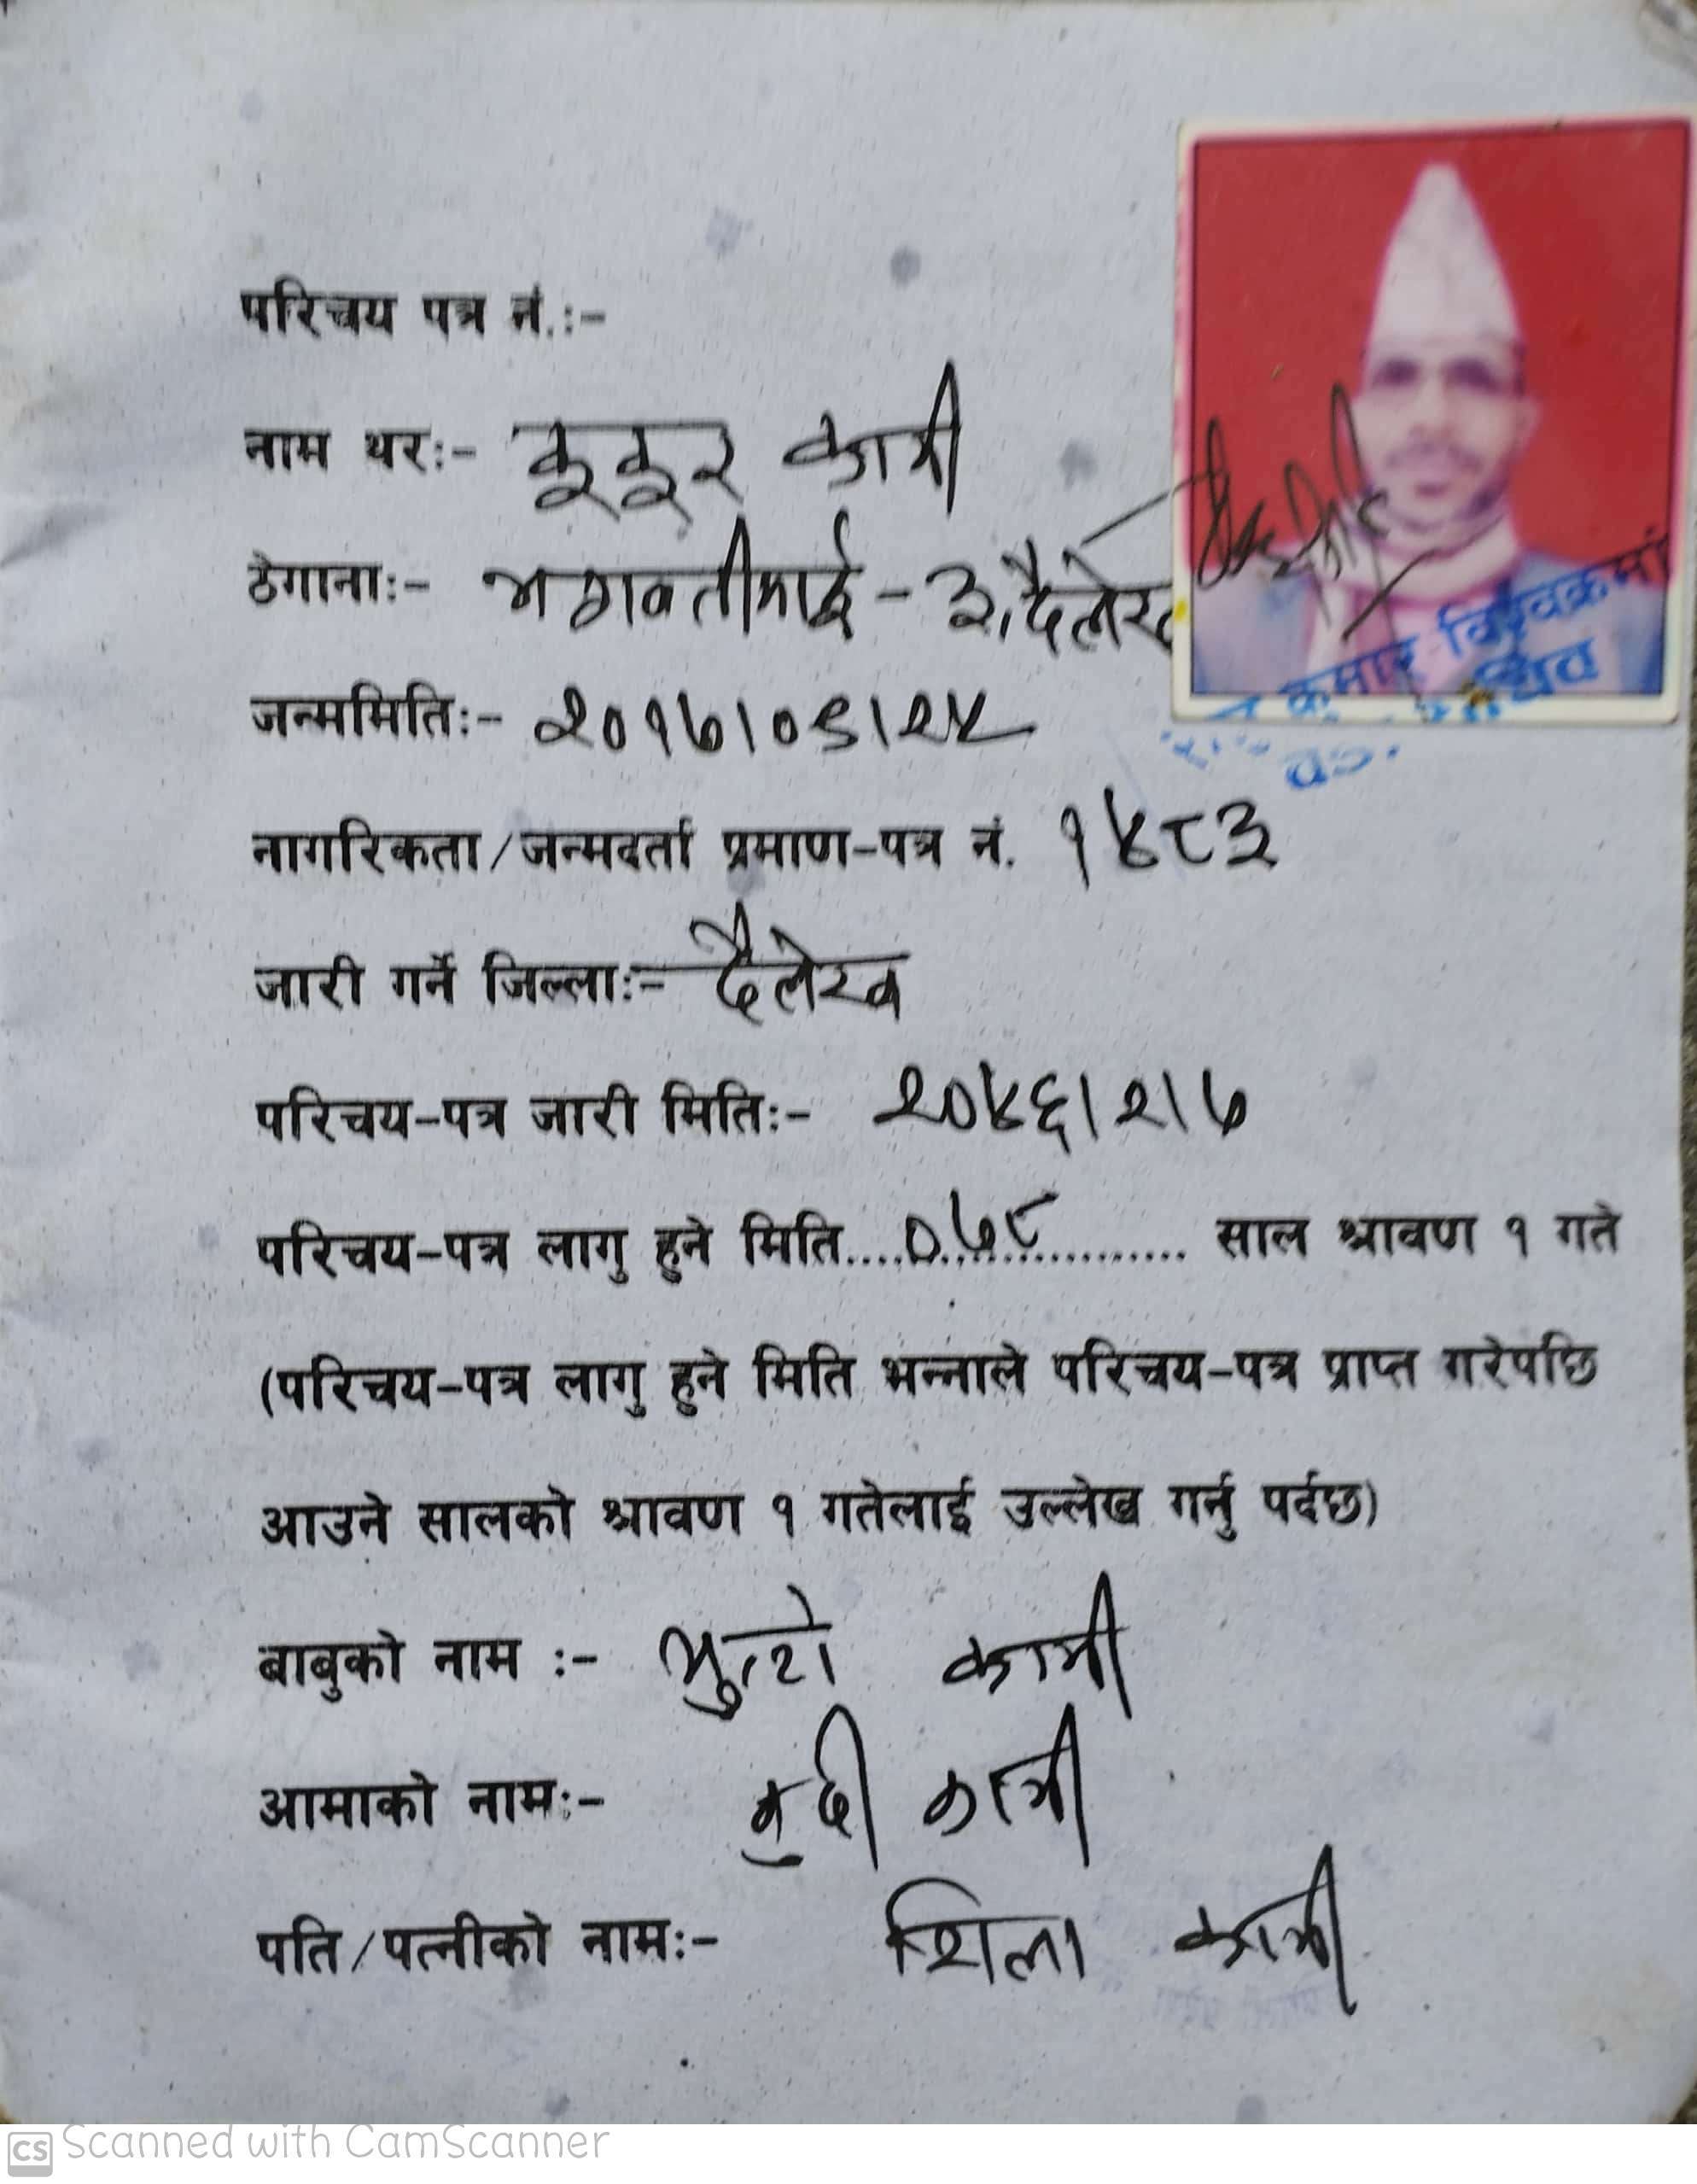 परिचय पत्र नं.:-
नाम थरः- कुकुर कामी
ठेगानाः- भगवतीमाई - ३, दैलेख
जन्ममितिः- २०१७।०९।२५
नागरिकता/जन्मदर्ता प्रमाण-पत्र नं. १४८३
जारी गर्ने जिल्लाः- दैलेख
परिचय-पत्र जारी मितिः- २०४६।२।७
परिचय-पत्र लागु हुने मिति....०७८................ साल श्रावण १ गते
(परिचय-पत्र लागु हुने मिति भन्नाले परिचय-पत्र प्राप्त गरेपछि
आउने सालको श्रावण १ गतेलाई उल्लेख गर्नु पर्दछ)
बाबुको नाम :- कामी
आमाको नामः- कामी
पति/पत्नीको नामः- शिला कामी
कुमार विश्वकर्मा
CS Scanned with CamScanner